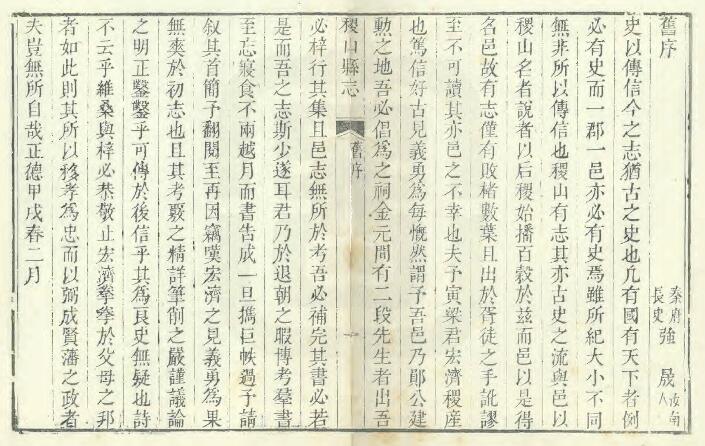 舊序
秦府長史強晟汝南人
史以傳信今之志猶古之史也凡有國有天下者例
必有史而一郡一邑亦必有史焉雖所紀大小不同
無非所以傳信也稷山有志其亦古史之流與邑以
稷山名者說者以后稷始播百穀於茲而邑以是得
名邑故有志僅有敗楮數葉且出於胥徒之手訛謬
至不可讀其亦邑之不幸也夫予寅梁君宏濟稷產
也篤信好古見義勇為每慨然謂予吾邑乃鄖公建
勲之地吾必倡為之祠金元間有二段先生者出吾
稷山縣志
舊序
一
必梓行其集且邑志無所於考吾必補完其書必若
是而吾之志斯少遂耳君乃於退朝之暇博考羣書
至忘寢食不兩越月而書告成一旦攜巨帙過予請
叙其首簡予翻閱至再因竊嘆宏濟之見義勇為果
無爽於初志也且其考覈之精詳筆削之嚴謹議論
之明正鑿鑿乎可傳於後信乎其為良史無疑也詩
不云乎維桑與梓必恭敬止宏濟拳拳於父母之邦
者如此則其所以移孝為忠而以弼成賢藩之政者
夫豈無所自哉正德甲戌春二月